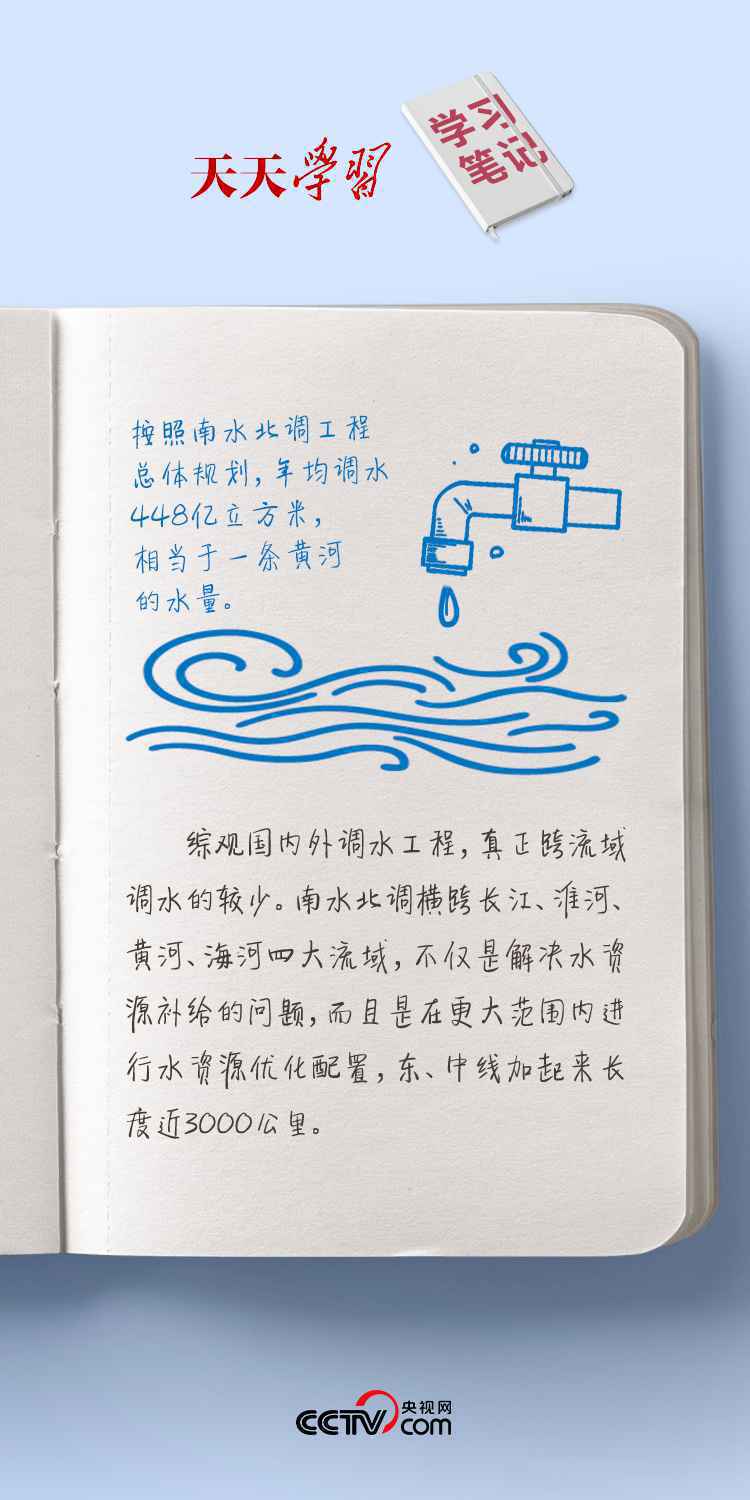 天天學習
学习
笔记
按照南水北调工程
总体规划，年均调水
448亿立方米，
相当于一条黄河
的水量。
综观国内外调水工程，真正跨流域
调水的较少。南水北调横跨长江、淮河、
黄河、海河四大流域，不仅是解决水资
源补给的问题，而且是在更大范围内进
行水资源优化配置，东、中线加起来长
度近3000公里。
CCTV.com 央视网